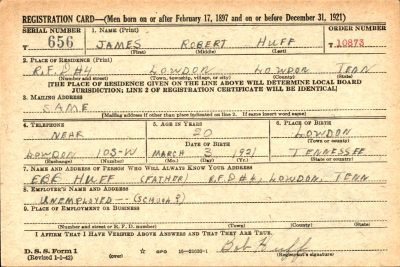 REGISTRATION CARD—(Men born on or after February 17, 1897 and on or before December 31, 1921)
SERIAL NUMBER 1. NAME (Print) ORDER NUMBER
T 656 JAMES ROBERT HUFF T 10873
(First) (Middle) (Last)
2. PLACE OF RESIDENCE (Print)
R.F.D #4 LOWDON LOWDON TENN
(Number and street) (Town, township, village, or city) (County) (State)
[THE PLACE OF RESIDENCE GIVEN ON THE LINE ABOVE WILL DETERMINE LOCAL BOARD
JURISDICTION; LINE 2 OF REGISTRATION CERTIFICATE WILL BE IDENTICAL]
3. MAILING ADDRESS
SAME
[Mailing address if other than place indicated on line 2. If same insert word same]
4. TELEPHONE 5. AGE IN YEARS 6. PLACE OF BIRTH
NEAR 20 LOWDON
DATE OF BIRTH (Town or county)
LOWDON 103-W MARCH 3 1921 TENNESSEE
(Exchange) (Number) (Mo.) (Day) (Yr.) (State or country)
7. NAME AND ADDRESS OF PERSON WHO WILL ALWAYS KNOW YOUR ADDRESS
HUFF (FATHER) R.F.D #4, LOWDON, TENN
8. EMPLOYER'S NAME AND ADDRESS
UNEMPLOYED--
9. PLACE OF EMPLOYMENT OR BUSINESS
(Number and street or R. F. D. number) (Town) (County) (State)
I AFFIRM THAT I HAVE VERIFIED ABOVE ANSWERS AND THAT THEY ARE TRUE.
D. S. S. Form 1
(Revised 1-5-42) (over) GPO Bob Huff
(Registrant's signature)